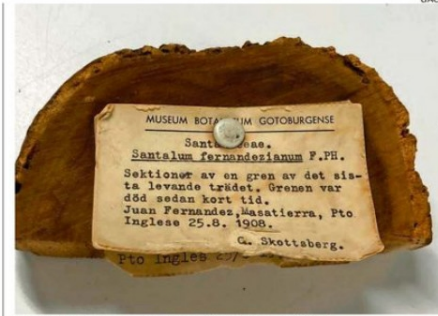 MUSEUM BOTANICUM GOTOBURGENSE
Santalaceae.
Santalum fernandezianum F.PH.
Sektioner av en gren av det sis-
ta levande trädet. Grenen var
död sedan kort tid.
Juan Fernandez,Masatierra, Pto
Inglese 25.8. 1908.
C. Skottsberg.
Pto Ingles 25/